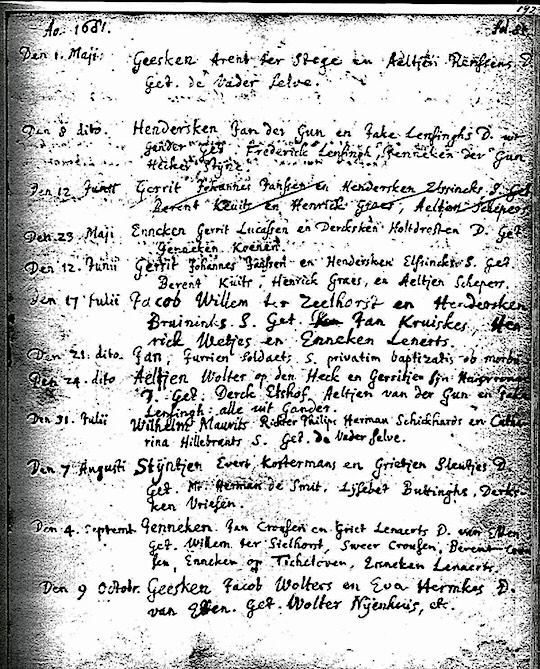 Ao. 1681. fol. 81.
Den 1. Maji Geesken Arent ter Stege en Aeltjen Renssens D.
Get. de Vader selve.
Den 8 dito. Hendersken Jan der Gun en Fake Lensinghs D. uit
Gander Get. Frederick Lensingh, Jenneken der Gun
Den 12 Junii Gerrit Johannes Janssen en Hendersken Elsrincks S. Get.
Berent Kuits en Henrick Graes, Aeltjen Schepers
Den 23. Maji Enneken Gerrit Lucassen en Dercksken Holtdrosten D. Get.
Jenneken Koenen.
Den 12. Junii Gerrit Johannes Janssen en Hendersken Elsrincks S. Get.
Berent Kuits, Henrick Graes, en Aeltjen Schepers.
Den 17 Julii Jacob Willem ter Zeelhorst en Hendersken
Bruininks S. Get. Jan Kruiskes, Hen
rick Wetjes en Enneken Lenerts.
Den 21. dito. Jan, Jurrien Soldaets S. privatim baptizatus ob morbu
Den 24. dito Aeltjen Wolter op den Heck en Gerritjen sijn
Get. Derck Elshof, Aeltjen van der Gun en Fake
Lensingh alle uit Gander.
Den 31. Julii Wilhelm Maurits Richter Philips Herman Schickhards en Catha
rina Hillebrants S. Get. de Vader selve.
Den 7 Augusti Stijntjen Evert Kostermans en Grietjen Sleutjes D.
Get. Mr. Herman de Smit. Lijsebet Buttinghs, Derks
ken Vriesen.
Den 4. Septemb. Jenneken. Jan Croessen en Griet Lenaerts D. van Etten
Get. Willem ter Sielhorst, Sweer Croessen, Berent
sen, Enneken op Ticheloven, Enneken Lenaerts.
Den 9 Octobr. Geesken Jacob Wolters en Eva Hermkes D.
van Etten. Get. Wolter Nijenhuis, etc.